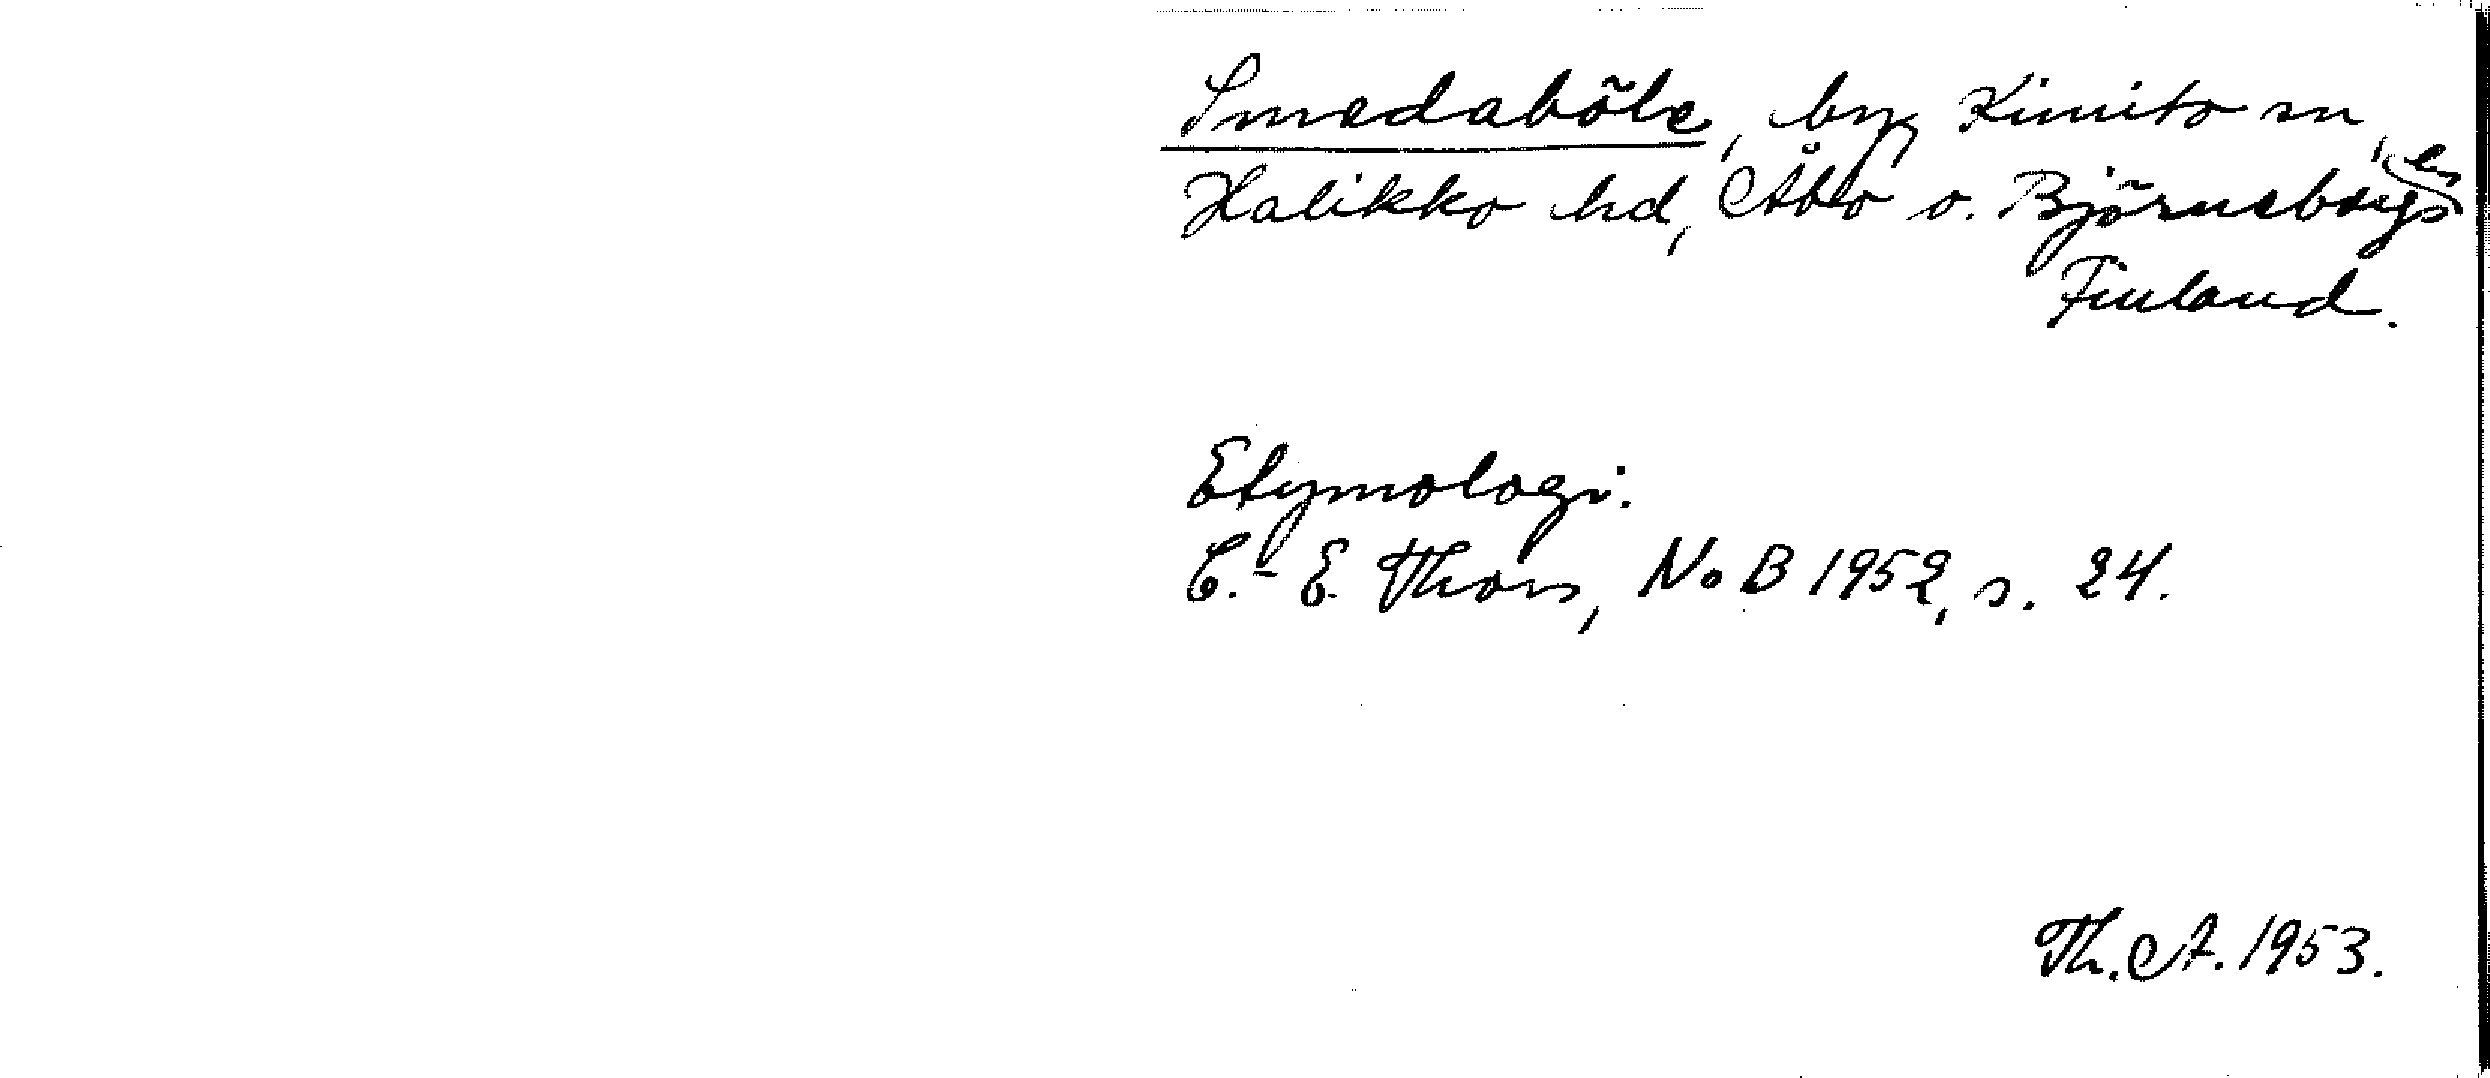 Smedaböle, by, Kimito sn,
Halikko hd, Åbo o. Björneborgs län
Finland.
Etymologi.
C.-E. Thors, NoB 1952, s. 24.
Th. A. 1953.